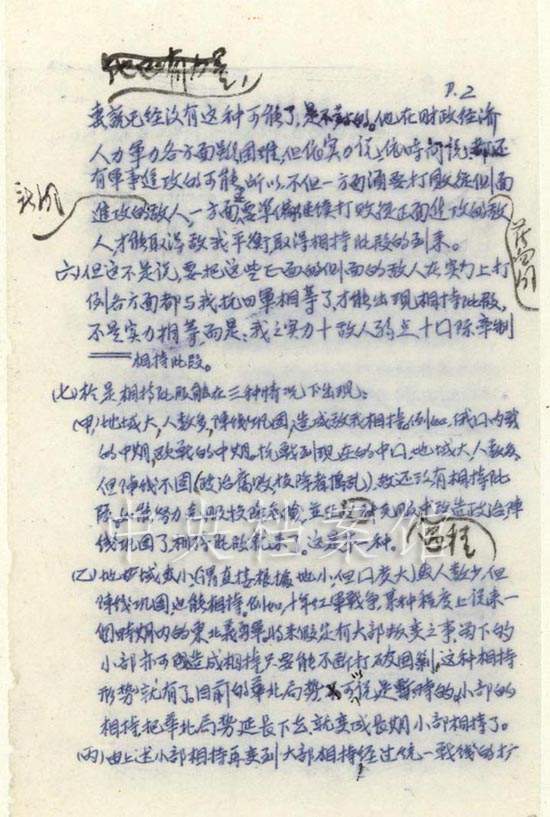 P.2
袁就已经没有这种可能了,是不对的。他在财政经济
人力军力各方面虽困难,但依实力说,依时间说,都还
有军事进攻的可能,所以不但一方面须要打败从侧面
进攻的敌人,一方面要准备继续打败从正面进攻的敌
人,才能取得敌我平衡取得相持阶段的到来。
六)但这不是说,要把这些正面的侧面的敌人在实力上打
到各方面都与我抗四军相等了,才能出现相持阶段,
不是实力相等,而是:我之实力十敌人弱点十口际牵制
相持阶段。
(七)於是,相持阶段能在三种情况下出现:
(甲)地域大,人数多,阵线巩固,造成敌我相持,例如,俄口内战
的中期,欧战的中期,抗战到现在的中口,地域大,人数多,
但阵线不固(政治腐败,投降者捣乱),敌还没有相持阶
线巩固了,相持阶段就来。这是一种。
过程
(乙)地域虽小(谓直接根据地小,但口度大)人数少,但
阵线巩固,也能相持。例如,十年红军战争,某种程度上说来一
个时期内的东北义勇军,将来假定有大部叛变之事,留下的
小部亦可造成相持,只要能不断打破围剿,这种相持
形势就有了。目前的华北局势可说是暂时的,小部的
相持,把华北局势延长下去,就变成长期小部相持了。
(丙)由上述小部相持再变到大部相持,经过统一战线的扩
中央档案馆